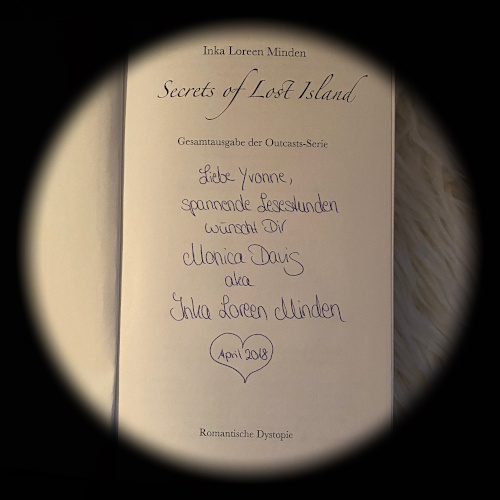 Inka Loreen Minden
Secrets of Lost Island
Gesamtausgabe der Outcasts-Serie
Liebe Yvonne,
spannende Lesestunden
wünscht Dir
Monica Davis
aka
Inka Loreen Minden
April 2018
Romantische Dystopie